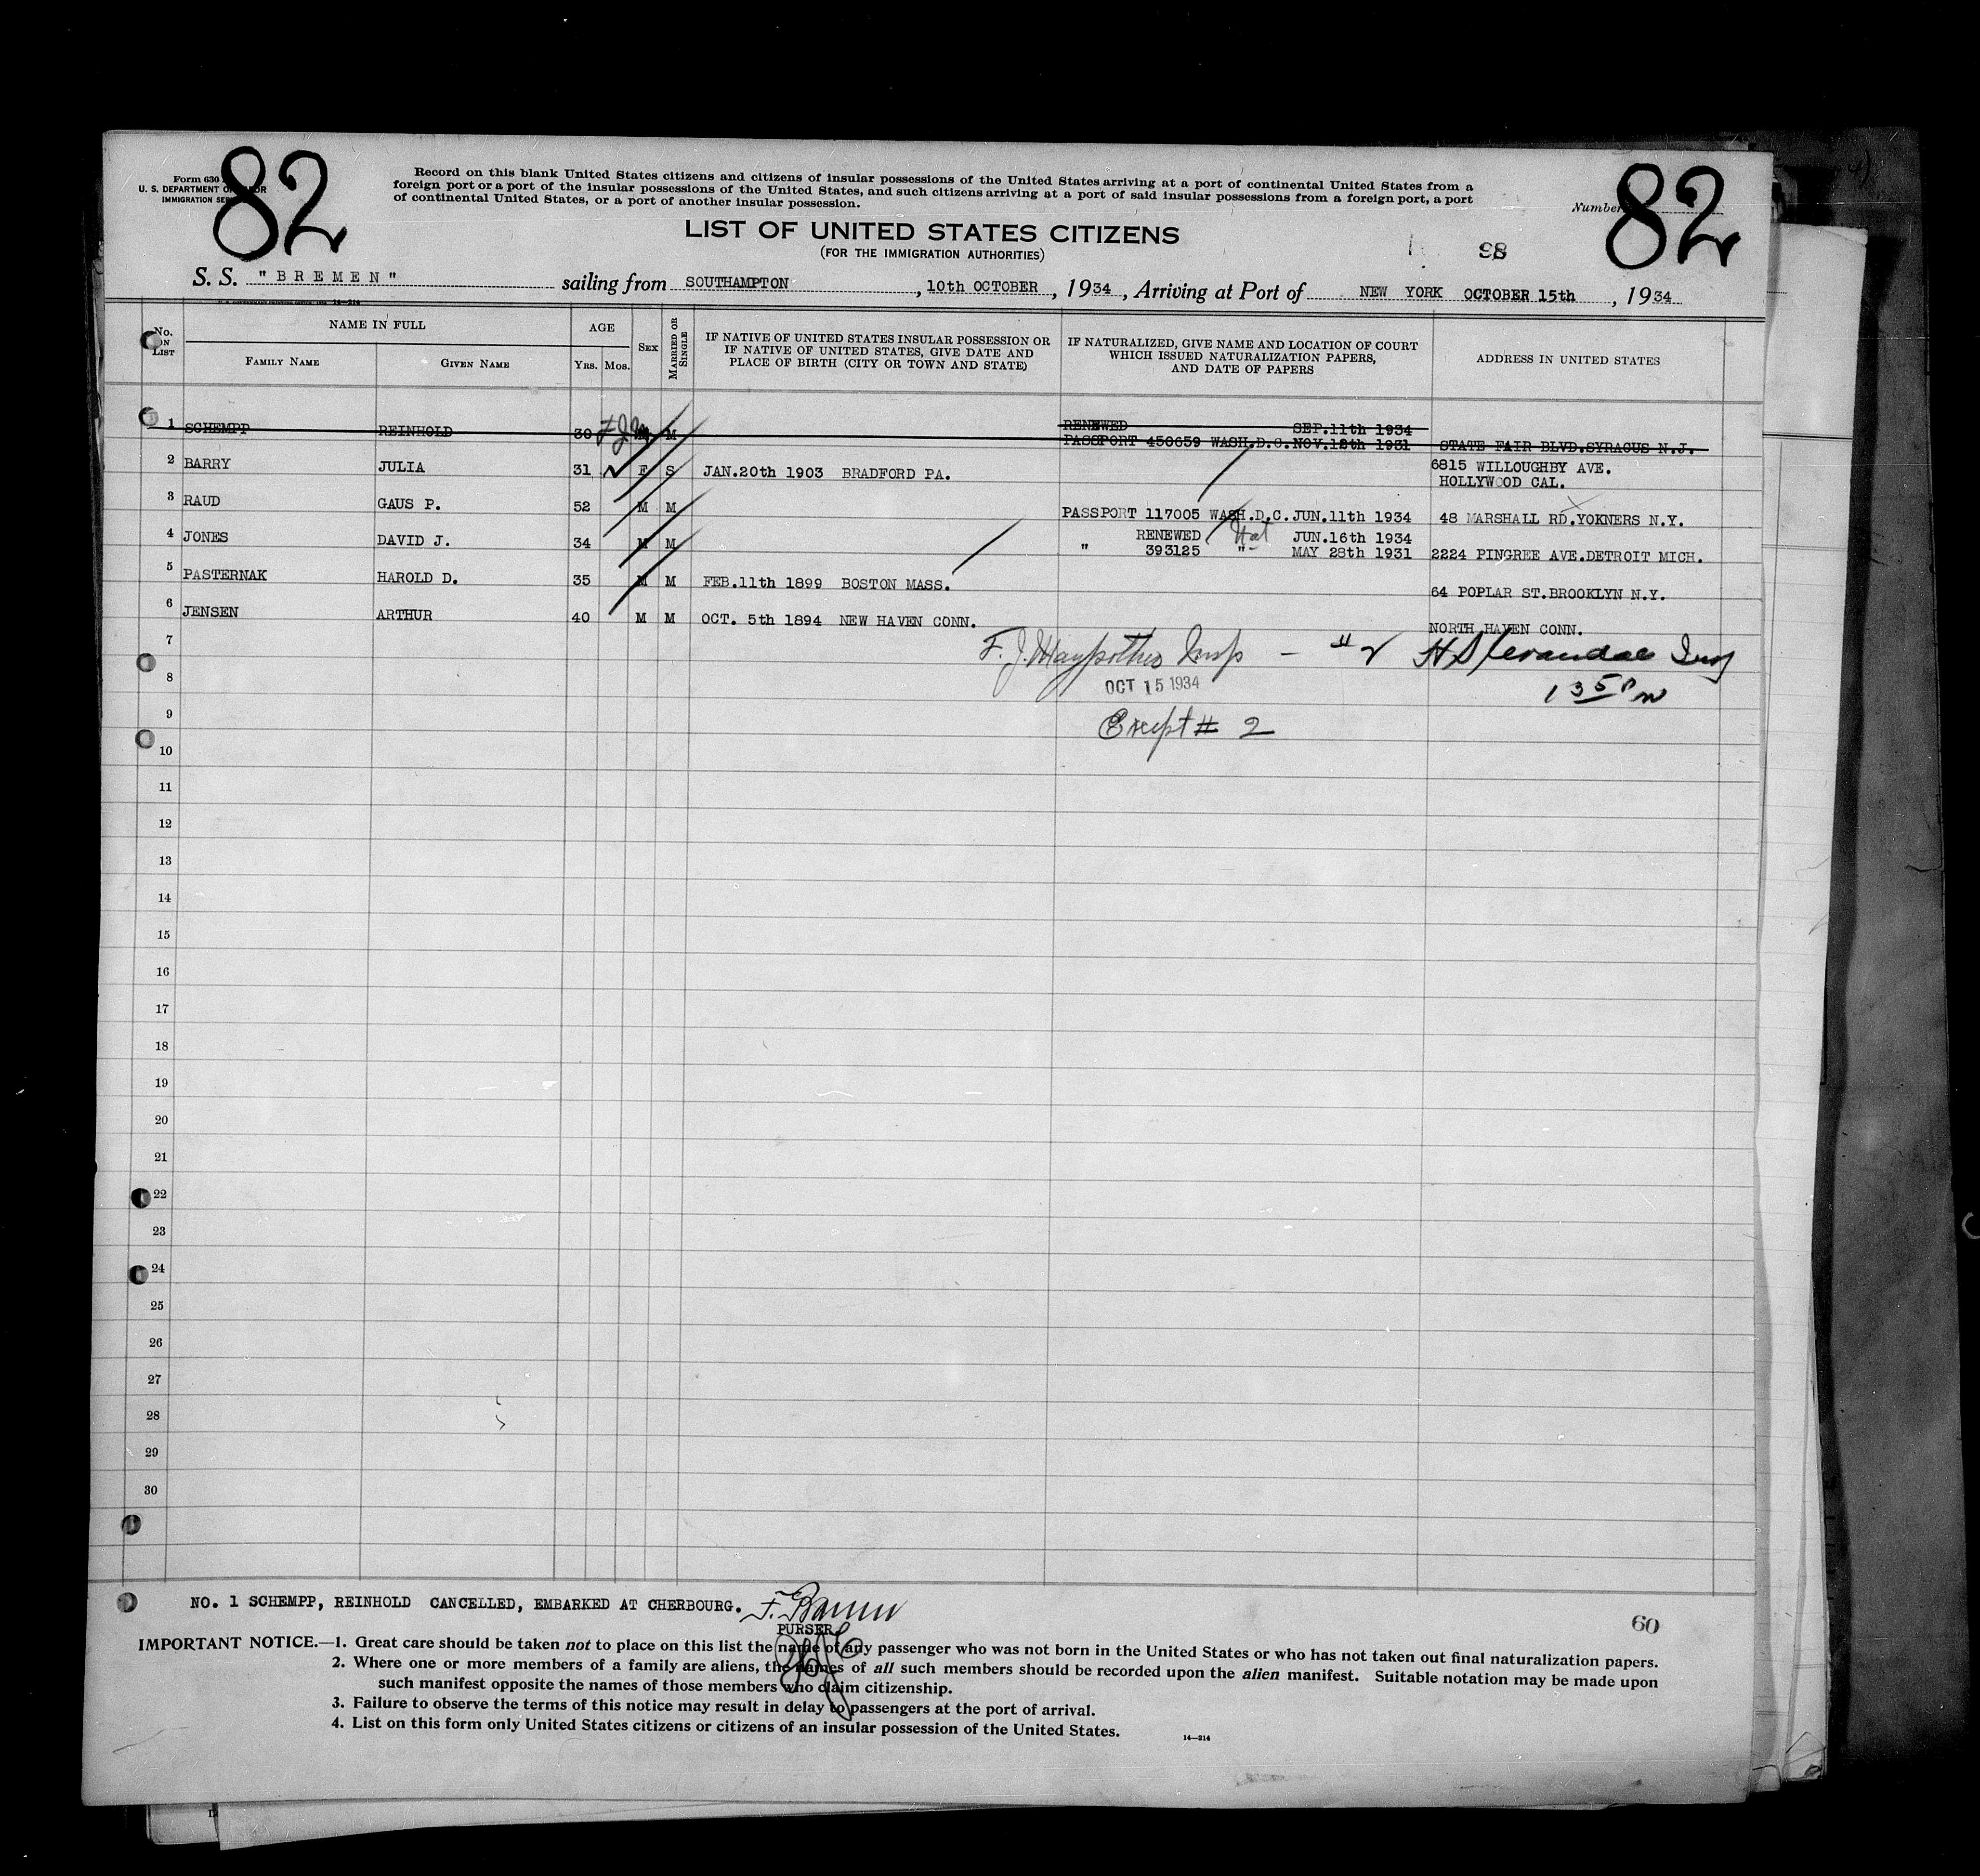 82
82
Form 630
U. S. DEPARTMENT OF LABOR
IMMIGRATION SERVICE
Record on this blank United States citizens and citizens of insular possessions of the United States arriving at a port of continental United States from a
foreign port or a port of the insular possessions of the United States, and such citizens arriving at a port of said insular possessions from a foreign port, a port
of continental United States, or a port of another insular possession.
Number
LIST OF UNITED STATES CITIZENS
(FOR THE IMMIGRATION AUTHORITIES)
98
S. S. "BREMEN" sailing from SOUTHAMPTON, 10th OCTOBER, 1934, Arriving at Port of NEW YORK OCTOBER 15th, 1934
No. ON LIST
NAME IN FULL
FAMILY NAME
GIVEN NAME
AGE
YRS. MOS.
SEX
MARRIED OR SINGLE
IF NATIVE OF UNITED STATES INSULAR POSSESSION OR
IF NATIVE OF UNITED STATES, GIVE DATE AND
PLACE OF BIRTH (CITY OR TOWN AND STATE)
IF NATURALIZED, GIVE NAME AND LOCATION OF COURT
WHICH ISSUED NATURALIZATION PAPERS,
AND DATE OF PAPERS
ADDRESS IN UNITED STATES
1 SCHEMPP REINHOLD 30 M M RENEWED SEP.11th 1934
PASSPORT 450659 WASH.D.C.NOV.12th 1931 STATE FAIR BLVD.SYRACUS N.J.
2 BARRY JULIA 31 F S JAN.20th 1903 BRADFORD PA. 6815 WILLOUGHBY AVE.
HOLLYWOOD CAL.
3 RAUD GAUS P. 52 M M PASSPORT 117005 WASH.D.C.JUN.11th 1934 48 MARSHALL RD.YOKNERS N.Y.
4 JONES DAVID J. 34 M M RENEWED JUN.16th 1934
" 393125 " MAY 28th 1931 2224 PINGREE AVE.DETROIT MICH.
5 PASTERNAK HAROLD D. 35 M M FEB.11th 1899 BOSTON MASS. 64 POPLAR ST.BROOKLYN N.Y.
6 JENSEN ARTHUR 40 M M OCT. 5th 1894 NEW HAVEN CONN. NORTH HAVEN CONN.
7
8
OCT 15 1934
9
Except # 2
10
11
12
13
14
15
16
17
18
19
20
21
22
23
24
25
26
27
28
29
30
NO. 1 SCHEMPP, REINHOLD CANCELLED, EMBARKED AT CHERBOURG.
PURSER
60
IMPORTANT NOTICE.—1. Great care should be taken not to place on this list the name of any passenger who was not born in the United States or who has not taken out final naturalization papers.
2. Where one or more members of a family are aliens, the names of all such members should be recorded upon the alien manifest. Suitable notation may be made upon
such manifest opposite the names of those members who claim citizenship.
3. Failure to observe the terms of this notice may result in delay to passengers at the port of arrival.
4. List on this form only United States citizens or citizens of an insular possession of the United States.
14—214